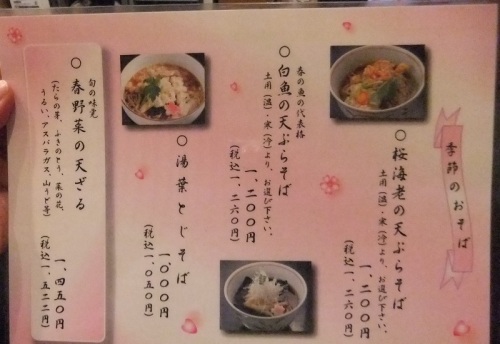 季節のおそば
○ 桜海老の天ぷらそば
土用(温)・氷(冷)より、お選び下さい。
一、二〇〇円
(税込一、二六〇円)
春の魚の代表格
○ 白魚の天ぷらそば
土用(温)・氷(冷)より、お選び下さい。
一、二〇〇円
(税込一、二六〇円)
○ 湯葉とじそば
一〇〇〇円
(税込一、〇五〇円)
旬の味覚
○ 春野菜の天ざる
(たらの芽、ふきのとう、菜の花、
うるい、アスパラガス、山うど等)
一、四五〇円
(税込一、五二二円)